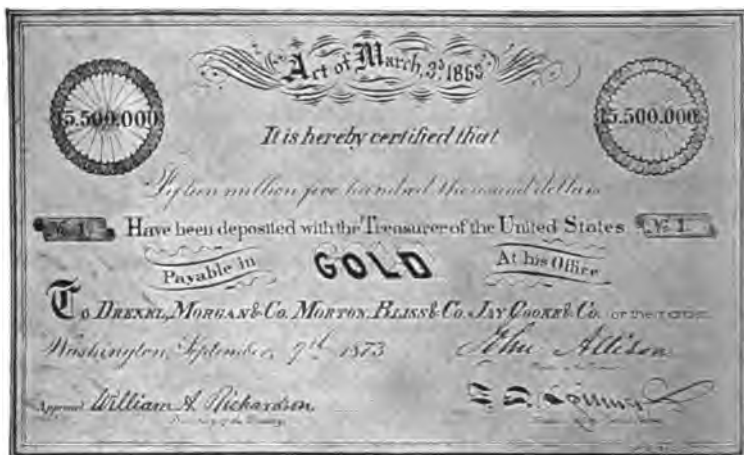 Act of March, 3ᵈ 1863
15.500.000 15.500.000
It is hereby certified that
Fifteen million five hundred thousand dollars
Nº 1. Have been deposited with the Treasurer of the United States Nº 1.
Payable in GOLD At his Office
To DREXEL, MORGAN & CO. MORTON, BLISS & CO. JAY COOKE & CO. or their order.
Washington, September 9th 1873 John Allison
Approved William A. Richardson
Secretary of the Treasury